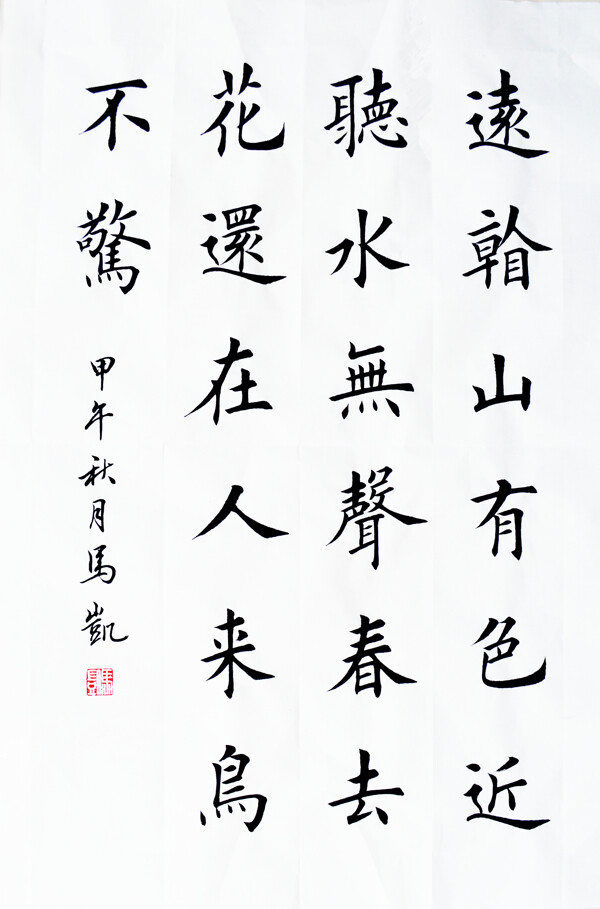 遠山有色近
聽水無聲春去
花還在人来鳥
不驚
甲午秋月馬凱